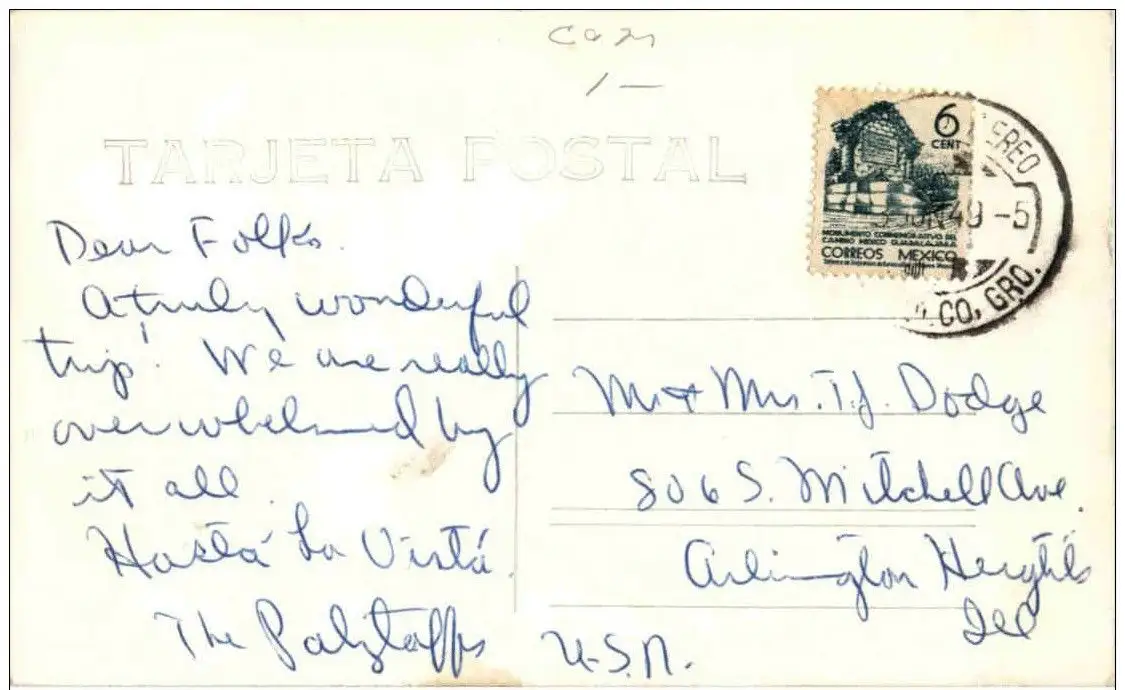 TARJETA POSTAL
6
CENT
MONUMENTO CONMEMORATIVO DEL
CAMINO MEXICO GUADALAJARA
CORREOS MEXICO
AEREO
JUN 49 -5
CO, GRO.
Dear Folks.
A truly wonderful
trip! We are really
overwhelmed by
it all.
Hastá La Vistá.
The Palztaffs
Mr & Mrs. T.J. Dodge
806 S. Mitchell Ave.
Arlington Heights
Ill
U.S.A.